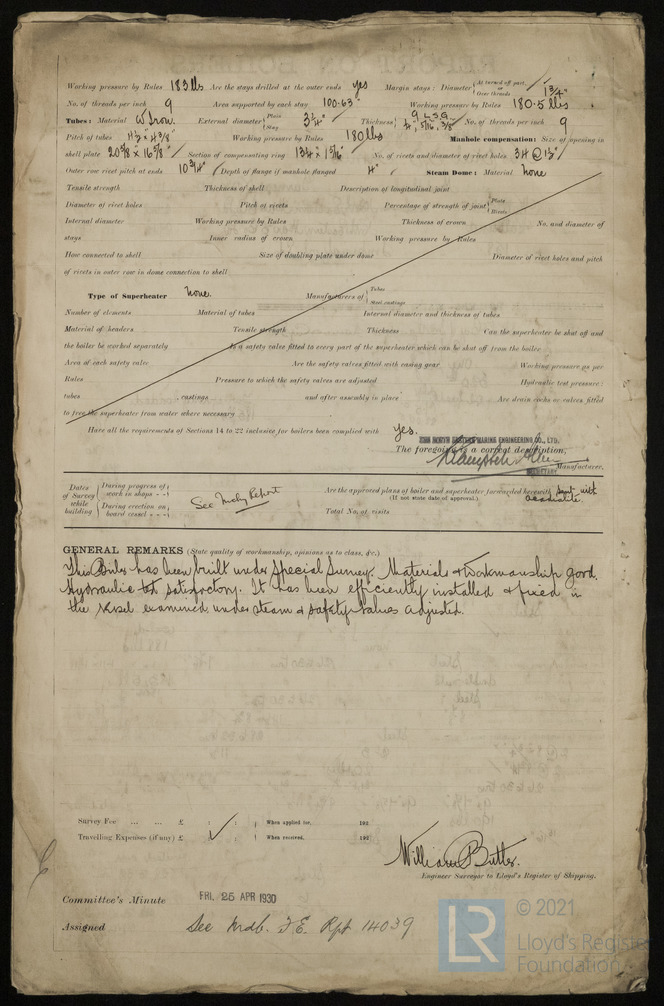 Working pressure by Rules 183 lbs Are the stays drilled at the outer ends yes Margin stays: Diameter { At turned off part, or Over threads 1 3/4"
No. of threads per inch 9 Area supported by each stay 100.63 Working pressure by Rules 180.5 lbs
Tubes: Material W Iron External diameter { Plain Stay 3 1/4" Thickness { 9 L.S.G. 1/4", 5/16, 3/8" No. of threads per inch 9
Pitch of tubes 4 1/2 x 4 3/8" Working pressure by Rules 180 lbs Manhole compensation: Size of opening in
shell plate 20 5/8 x 16 5/8" Section of compensating ring No. of rivets and diameter of rivet holes 34 @
Outer row rivet pitch at ends 10 3/4" Depth of flange if manhole flanged 4" Steam Dome: Material None
Tensile strength Thickness of shell Description of longitudinal joint
Diameter of rivet holes Pitch of rivets Percentage of strength of joint { Plate Rivets
Internal diameter Working pressure by Rules Thickness of crown No. and diameter of
stays Inner radius of crown Working pressure by Rules
How connected to shell Size of doubling plate under dome Diameter of rivet holes and pitch
of rivets in outer row in dome connection to shell
Type of Superheater None Manufacturers of { Tubes Steel castings
Number of elements Material of tubes Internal diameter and thickness of tubes
Material of headers Tensile strength Thickness Can the superheater be shut off and
the boiler be worked separately Is a safety valve fitted to every part of the superheater which can be shut off from the boiler
Area of each safety valve Are the safety valves fitted with easing gear Working pressure as per
Rules Pressure to which the safety valves are adjusted Hydraulic test pressure:
tubes , castings and after assembly in place Are drain cocks or valves fitted
to free the superheater from water where necessary
Have all the requirements of Sections 14 to 22 inclusive for boilers been complied with Yes.
NORTH EASTERN MARINE ENGINEERING CO., LTD.
The foregoing is a correct description,
SECRETARY Manufacturer.
Dates of Survey while building { During progress of work in shops - - During erection on board vessel - - - See Mchy Report Are the approved plans of boiler and superheater forwarded herewith sent with
(If not state date of approval.)
Total No. of visits
GENERAL REMARKS (State quality of workmanship, opinions as to class, &c.)
This Boiler has been built under Special Survey. Materials & Workmanship good.
Hydraulic test satisfactory. It has been efficiently installed & fixed in
the vessel examined under steam & safety valves adjusted.
Survey Fee ... ... £ : : When applied for, 192
Travelling Expenses (if any) £ : : When received, 192
William Butler.
Engineer Surveyor to Lloyd's Register of Shipping.
Committee's Minute FRI. 25 APR 1930
Assigned See Mdb. F.E. Rpt 14039
LR © 2021
Lloyd's Register
Foundation